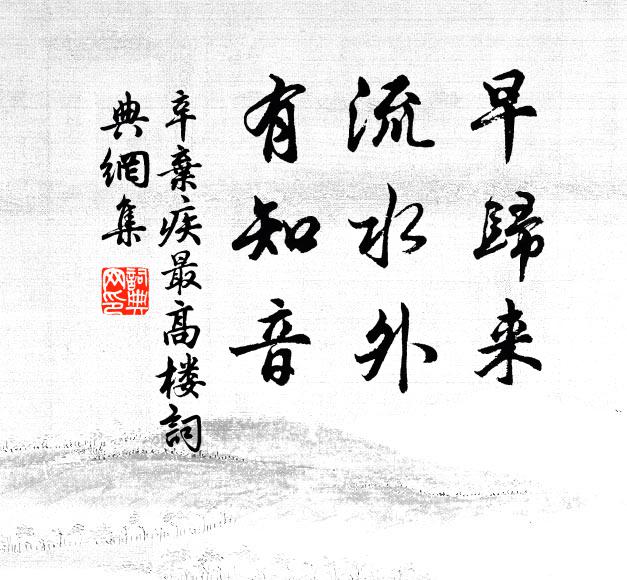 早歸来
流水外
有知音
辛棄疾最高楼詞
典網集
詞典
网印